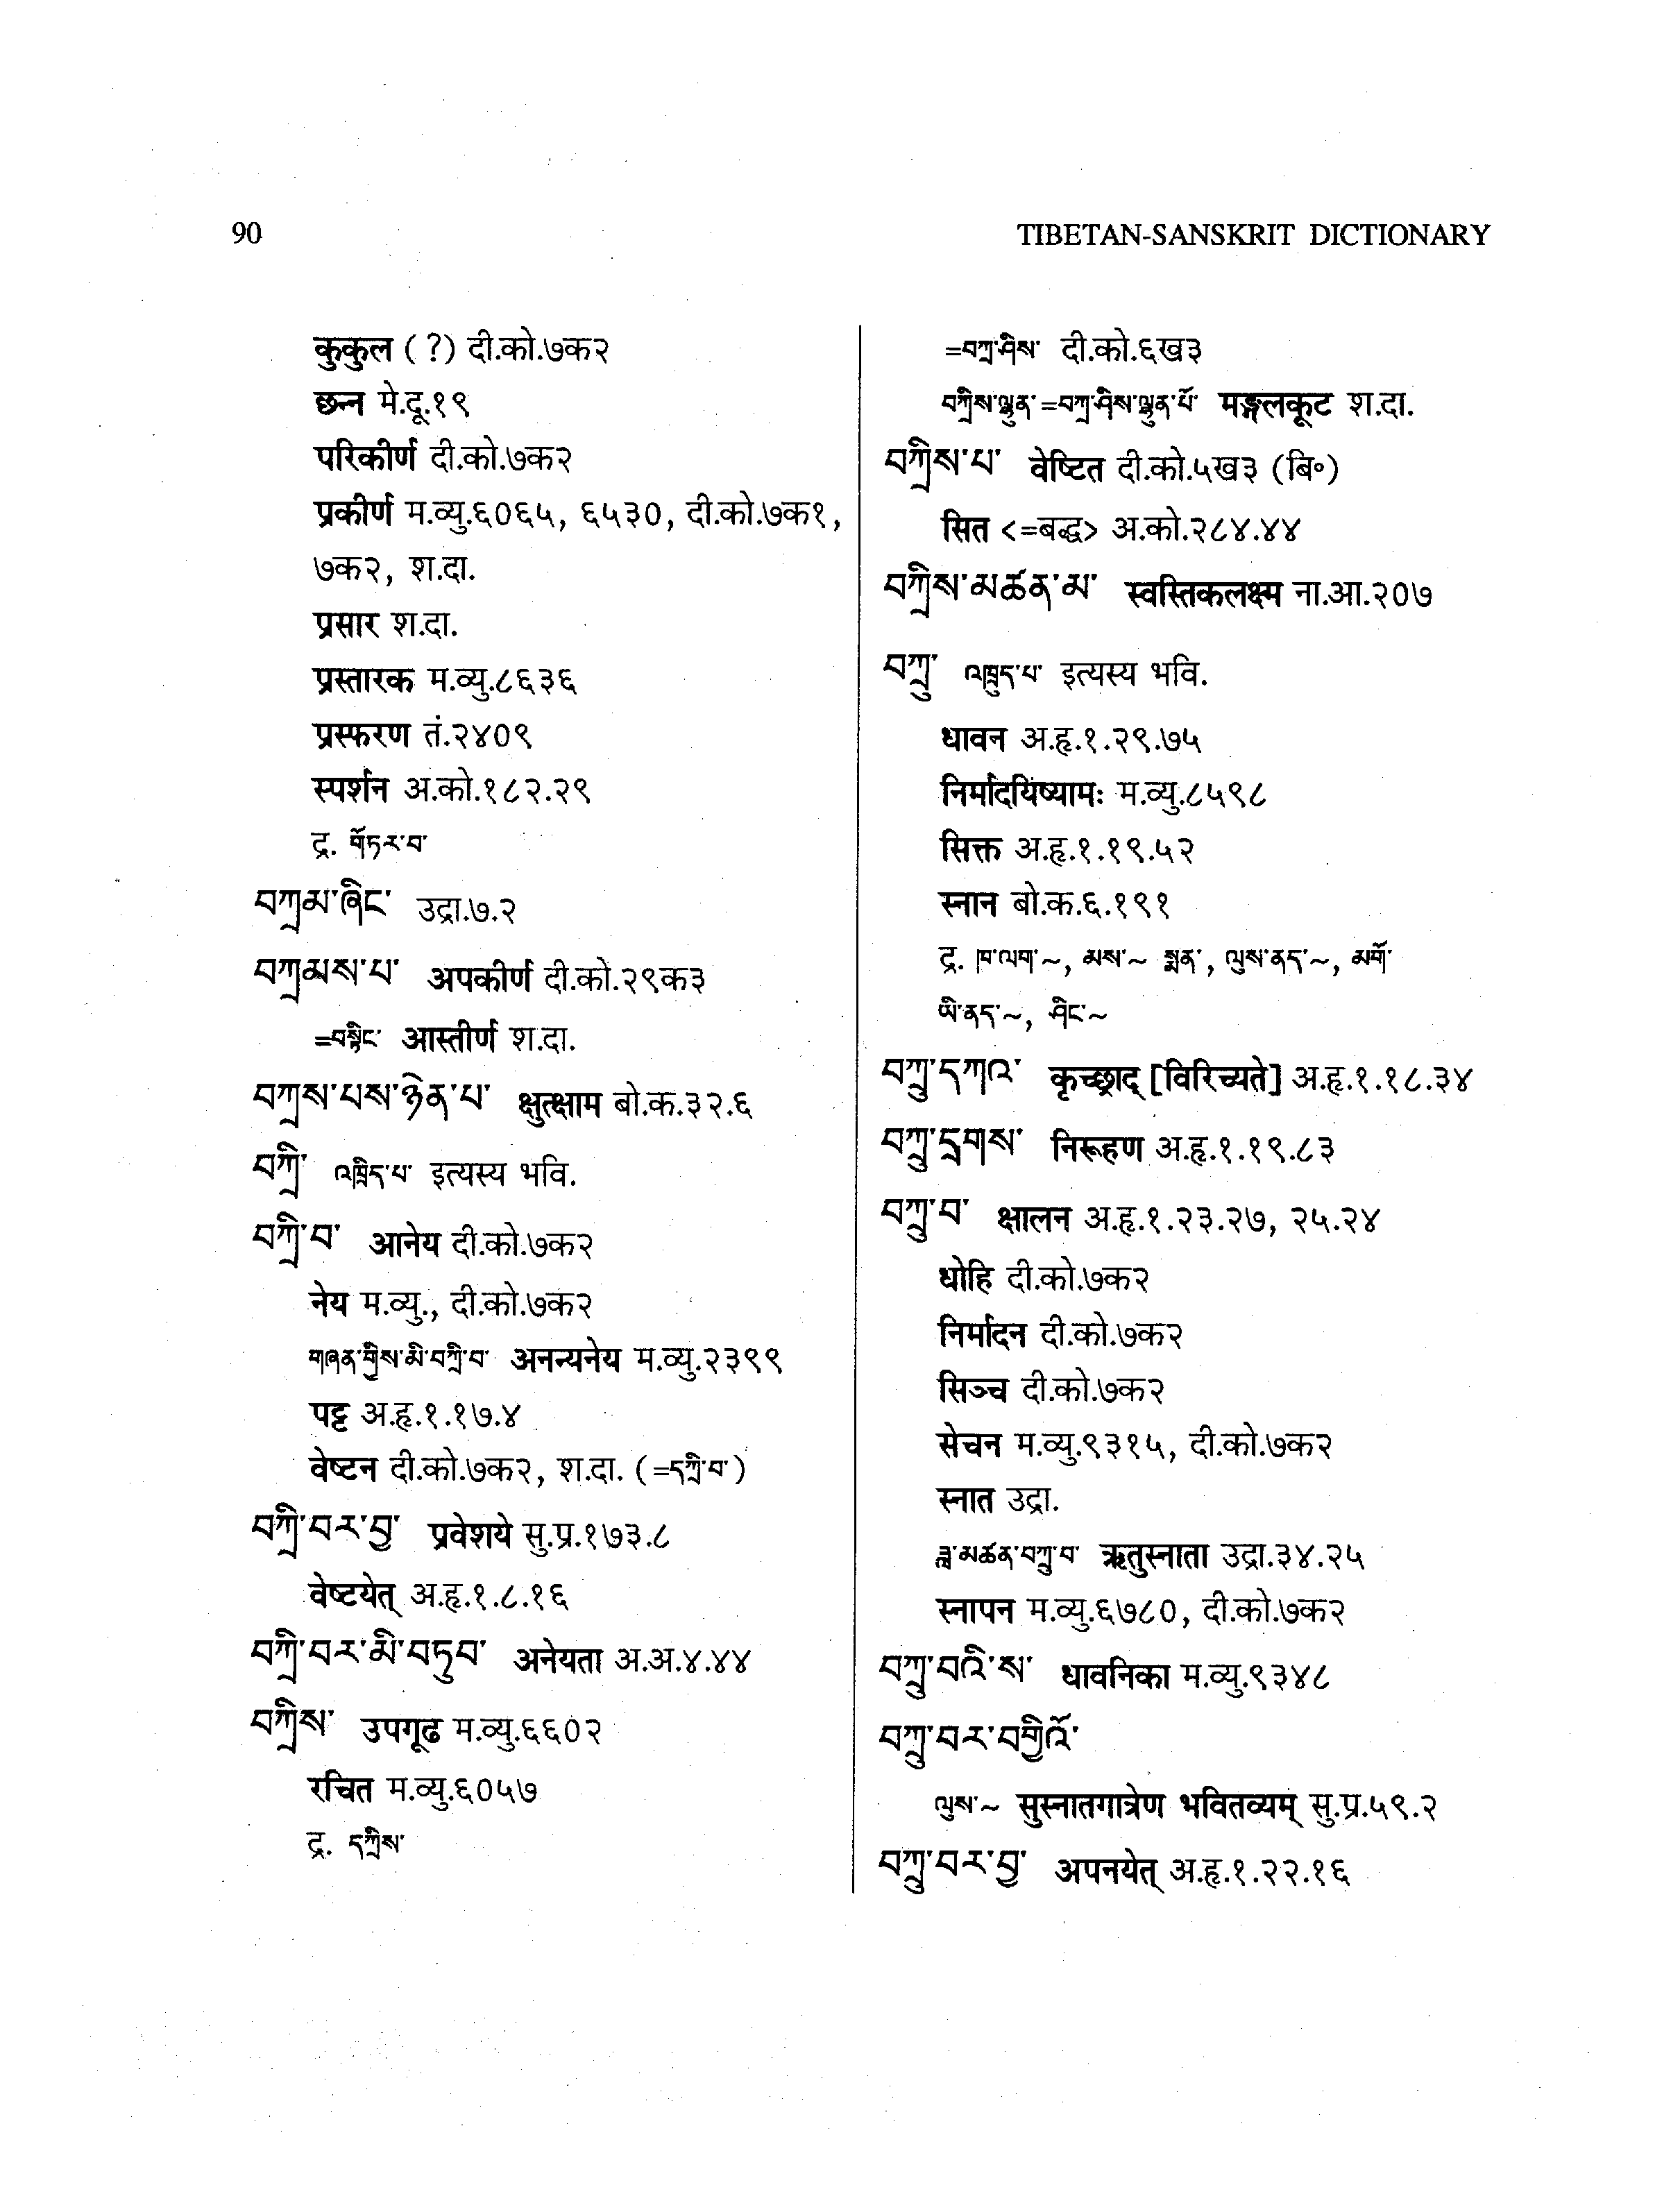 90
TIBETAN-SANSKRIT DICTIONARY
कुकुल (?) दी.को.७क२
छन्न मे.दू.१९
परिकीर्ण दी.को.७क२
प्रकीर्ण म.व्यु.६०६५, ६५३०, दी.को.७क१,
७क२, श.दा.
प्रसार श.दा.
प्रस्तारक म.व्यु.८६३६
प्रस्फरण तं.२४०९
स्पर्शन अ.को.१८२.२९
द्र. གཏོར་བ་
བཀྲམ་ཞིང་ उद्रा.७.२
བཀྲམས་པ་ अपकीर्ण दी.को.२९क३
=བསྟིང་ आस्तीर्ण श.दा.
བཀྲས་པས་ཉེན་པ་ क्षुत्क्षाम बो.क.३२.६
བཀྲི་ འཁྲིད་པ་ इत्यस्य भवि.
བཀྲི་བ་ आनेय दी.को.७क२
नेय म.व्यु., दी.को.७क२
གཞན་གྱིས་མི་བཀྲི་བ་ अनन्यनेय म.व्यु.२३९९
पट्ट अ.हृ.१.१७.४
वेष्टन दी.को.७क२, श.दा. (=དཀྲི་བ་)
བཀྲི་བར་བྱ་ प्रवेशये सु.प्र.१७३.८
वेष्टयेत् अ.हृ.१.८.१६
བཀྲི་བར་མི་བཏུབ་ अनेयता अ.अ.४.४४
བཀྲིས་ उपगूढ म.व्यु.६६०२
रचित म.व्यु.६०५७
द्र. དཀྲིས་
=བཀྲ་ཤིས་ दी.को.६ख३
བཀྲིས་ལྷུན་=བཀྲ་ཤིས་ལྷུན་པོ་ मङ्गलकूट श.दा.
བཀྲིས་པ་ वेष्टित दी.को.५ख३ (बि॰)
सित <=बद्ध> अ.को.२८४.४४
བཀྲིས་མཚན་མ་ स्वस्तिकलक्ष्म ना.आ.२०७
བཀྲུ་ འཁྲུད་པ་ इत्यस्य भवि.
धावन अ.हृ.१.२९.७५
निर्मादयिष्यामः म.व्यु.८५९८
सिक्त अ.हृ.१.१९.५२
स्नान बो.क.६.१९१
द्र. ཁ་ལག་~, མས་~ སྨན་, ལུས་ནད་~, མགོ་
ཡི་ནད་~, ཤིང་~
བཀྲུ་དཀའ་ कृच्छ्राद् [विरिच्यते] अ.हृ.१.१८.३४
བཀྲུ་དྲགས་ निरूहण अ.हृ.१.१९.८३
བཀྲུ་བ་ क्षालन अ.हृ.१.२३.२७, २५.२४
धोहि दी.को.७क२
निर्मादन दी.को.७क२
सिञ्च दी.को.७क२
सेचन म.व्यु.९३१५, दी.को.७क२
स्नात उद्रा.
ཟླ་མཚན་བཀྲུ་བ་ ऋतुस्नाता उद्रा.३४.२५
स्नापन म.व्यु.६७८०, दी.को.७क२
བཀྲུ་བའི་ས་ धावनिका म.व्यु.९३४८
བཀྲུ་བར་བགྱིའོ་
ལུས་~ सुस्नातगात्रेण भवितव्यम् सु.प्र.५९.२
བཀྲུ་བར་བྱ་ अपनयेत् अ.हृ.१.२२.१६